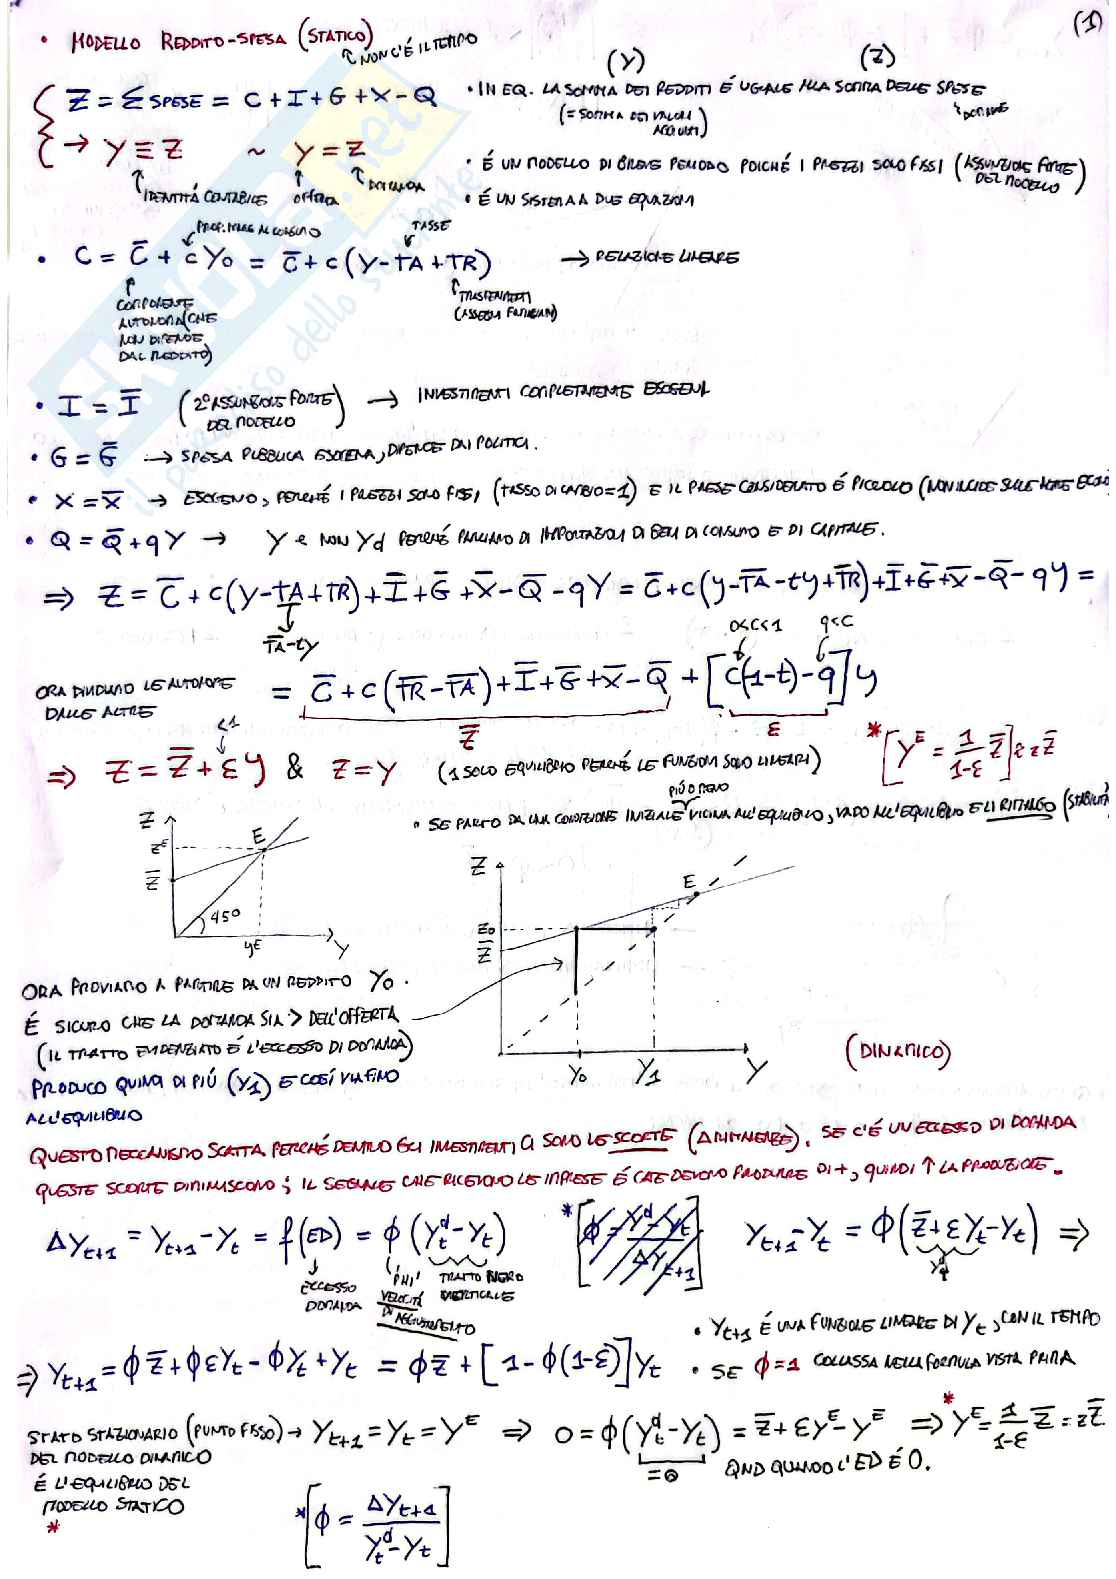 (1)
• MODELLO REDDITO-SPESA (STATICO)
NON C'È IL TEMPO
(Y) (Z)
Z = Σ SPESE = C + I + G + X - Q
• IN EQ. LA SOMMA DEI REDDITI È UGUALE ALLA SOMMA DELLE SPESE
(= SOMMA DEI VALORI AGGIUNTI)
DOMANDE
→ Y ≡ Z ~ Y = Z
IDENTITÁ CONTABILE OFFERTA DOMANDA
• È UN MODELLO DI BREVE PERIODO POICHÉ I PREZZI SONO FISSI (ASSUNZIONE FORTE DEL MODELLO)
• È UN SISTEMA A DUE EQUAZIONI
PROP. MARG. AL CONSUMO TASSE
• C = C̄ + cY_D = C̄ + c(Y - TA + TR) → RELAZIONE LINEARE
COMPONENTE AUTONOMA (CHE NON DIPENDE DAL REDDITO)
TRASFERIMENTI (ASSEGNI FAMILIARI)
• I = Ī (2° ASSUNZIONE FORTE DEL MODELLO) → INVESTIMENTI COMPLETAMENTE ESOGENI
• G = Ḡ → SPESA PUBBLICA ESOGENA, DIPENDE DAI POLITICI.
• X = X̄ → ESOGENO, PERCHÉ I PREZZI SONO FISSI, (TASSO DI CAMBIO=1) E IL PAESE CONSIDERATO È PICCOLO (NON INCIDE SULLE ALTRE ECON
• Q = Q̄ + qY → Y e NON Yd PERCHÉ PARLIAMO DI IMPORTAZIONI DI BENI DI CONSUMO E DI CAPITALE.
⇒ Z = C̄ + c(Y - TA + TR) + Ī + Ḡ + X̄ - Q̄ - qY = C̄ + c(Y - T̄A̅ - tY + T̄R̅) + Ī + Ḡ + X̄ - Q̄ - qY =
T̄A̅ - tY
0<c<1 q<c
ORA DIVIDIAMO LE AUTONOME DALLE ALTRE
= C̄ + c(T̄R̅ - T̄A̅) + Ī + Ḡ + X̄ - Q̄ + [c(1-t) - q]Y
Z̄ ε
<1
⇒ Z = Z̄ + εY & Z = Y (1 SOLO EQUILIBRIO PERCHÉ LE FUNZIONI SONO LINEARI)
* [Y^E = 1/(1-ε) Z̄] = zZ̄
PIÚ O MENO
• SE PARTO DA UNA CONDIZIONE INIZIALE VICINA ALL'EQUILIBRIO, VADO ALL'EQUILIBRIO E LI RIMANGO (STABILITÁ
Z Z^E Z̄ E 45° Y^E Y
Z Z0 Z̄ E Y0 Y1 Y
ORA PROVIAMO A PARTIRE DA UN REDDITO Y0.
È SICURO CHE LA DOMANDA SIA > DELL'OFFERTA
(IL TRATTO EVIDENZIATO È L'ECCESSO DI DOMANDA)
PRODUCO QUINDI DI PIÚ (Y1) E COSÍ VIA FINO
ALL'EQUILIBRIO
(DINAMICO)
QUESTO MECCANISMO SCATTA PERCHÉ DENTRO GLI INVESTIMENTI CI SONO LE SCORTE (Δ RIMANENZE). SE C'È UN ECCESSO DI DOMANDA
QUESTE SCORTE DIMINUISCONO; IL SEGNALE CHE RICEVONO LE IMPRESE È CHE DEVONO PRODURRE DI +, QUINDI ↑ LA PRODUZIONE.
ΔY_{t+1} = Y_{t+1} - Y_t = f(ED) = ϕ(Y_t^d - Y_t)
*[ϕ = (Y_t^d - Y_t)/ΔY_{t+1}]
Y_{t+1} - Y_t = ϕ(Z̄ + εY_t - Y_t) ⇒
ECCESSO DOMANDA
'PHI' VELOCITÁ DI AGGIUSTAMENTO
TRATTO NERO VERTICALE
• Y_{t+1} È UNA FUNZIONE LINEARE DI Y_t, CON IL TEMPO
⇒ Y_{t+1} = ϕZ̄ + ϕεY_t - ϕY_t + Y_t = ϕZ̄ + [1 - ϕ(1-ε)]Y_t
• SE ϕ=1 COLLASSA NELLA FORMULA VISTA PRIMA
STATO STAZIONARIO (PUNTO FISSO) → Y_{t+1} = Y_t = Y^E ⇒ 0 = ϕ(Y_t^d - Y_t) = Z̄ + εY^E - Y^E ⇒ * Y^E = 1/(1-ε) Z̄ = zZ̄
DEL MODELLO DINAMICO
È L'EQUILIBRIO DEL
MODELLO STATICO
*
=0 QND QUANDO L'ED È 0.
*[ϕ = ΔY_{t+1}/(Y_t^d - Y_t)]